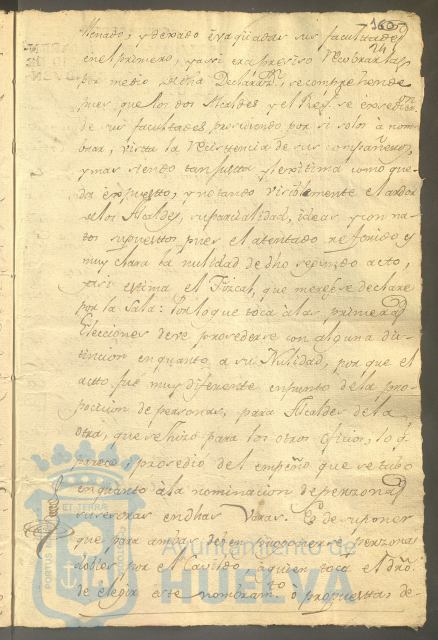 160
24
Menado, y dexado evaquadas sus facultades
en el primero, y assi era preciso recobrarlas
por medio de dha Declarazn. se comprehende
pues, que los dos Alcaldes y el Rexr. se excedieron
de sus facultades procediendo por si solos à nom-
brar, vista la resistencia de sus compañeros,
y mas siendo tan justa y lexitima como que-
da expuesto, y notando visiblemente el ardor
de los Alcaldes, su parcialidad, ideas, y con na-
tos supuestos pues el atentado referido es
muy clara la nulidad de dho segundo acto,
y assi estima el Fiscal, que merese se declare
por la Sala: Por lo que toca à las primeras
Elecciones deve procederse con alguna dis-
tincion en quanto a su Nulidad, por que el
acto fue muy diferente en punto de la pro-
posicion de personas, para Alcaldes de la
otra, que se hizo para los otros oficios, lo q.
parece, procedió del empeño que se tubo
en quanto à la nominacion de personas
en dhas Varas. Es de suponer
que para ambas deven proponerse personas
dobles por el Cavildo, à quien toca el dro.
de elegir este nombramto. ò propuestas de
PORTUS
ET TERRÆ
CUSTODIA
Ayuntamiento de
HUELVA